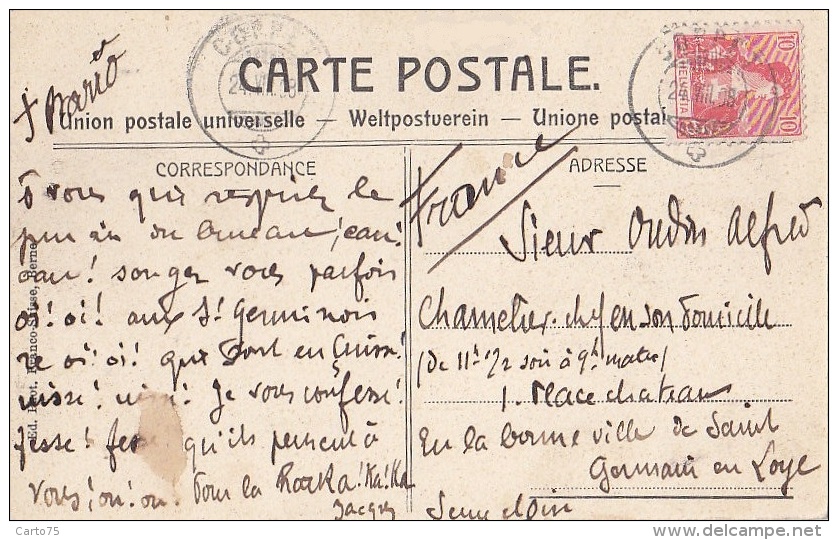 COPPET
CARTE POSTALE.
Union postale universelle — Weltpostverein — Unione postal
10 HELVETIA 10
CORRESPONDANCE
ADRESSE
France
O vous qui respirez le
pur air du
! songez vous parfois
oi! oi! aux St Germinois
re oi! oi! qui sont en Suisse!
uisse! uisse! Je vous confesse!
fesse! fesse qu'ils pensent à
vous! ou! ou! Pour la Rocka! Ka! Ka
Jacques
Sieur Oudin Alfred
Chamelier chef en son domicile
(De 11h 1/2 soir à 9h matin)
1. Place chateau
En la bonne ville de Saint
Germain en Laye
Seine et Oise
Ed. Phot. Franco-Suisse, Berne
Carto75
www.delcampe.net